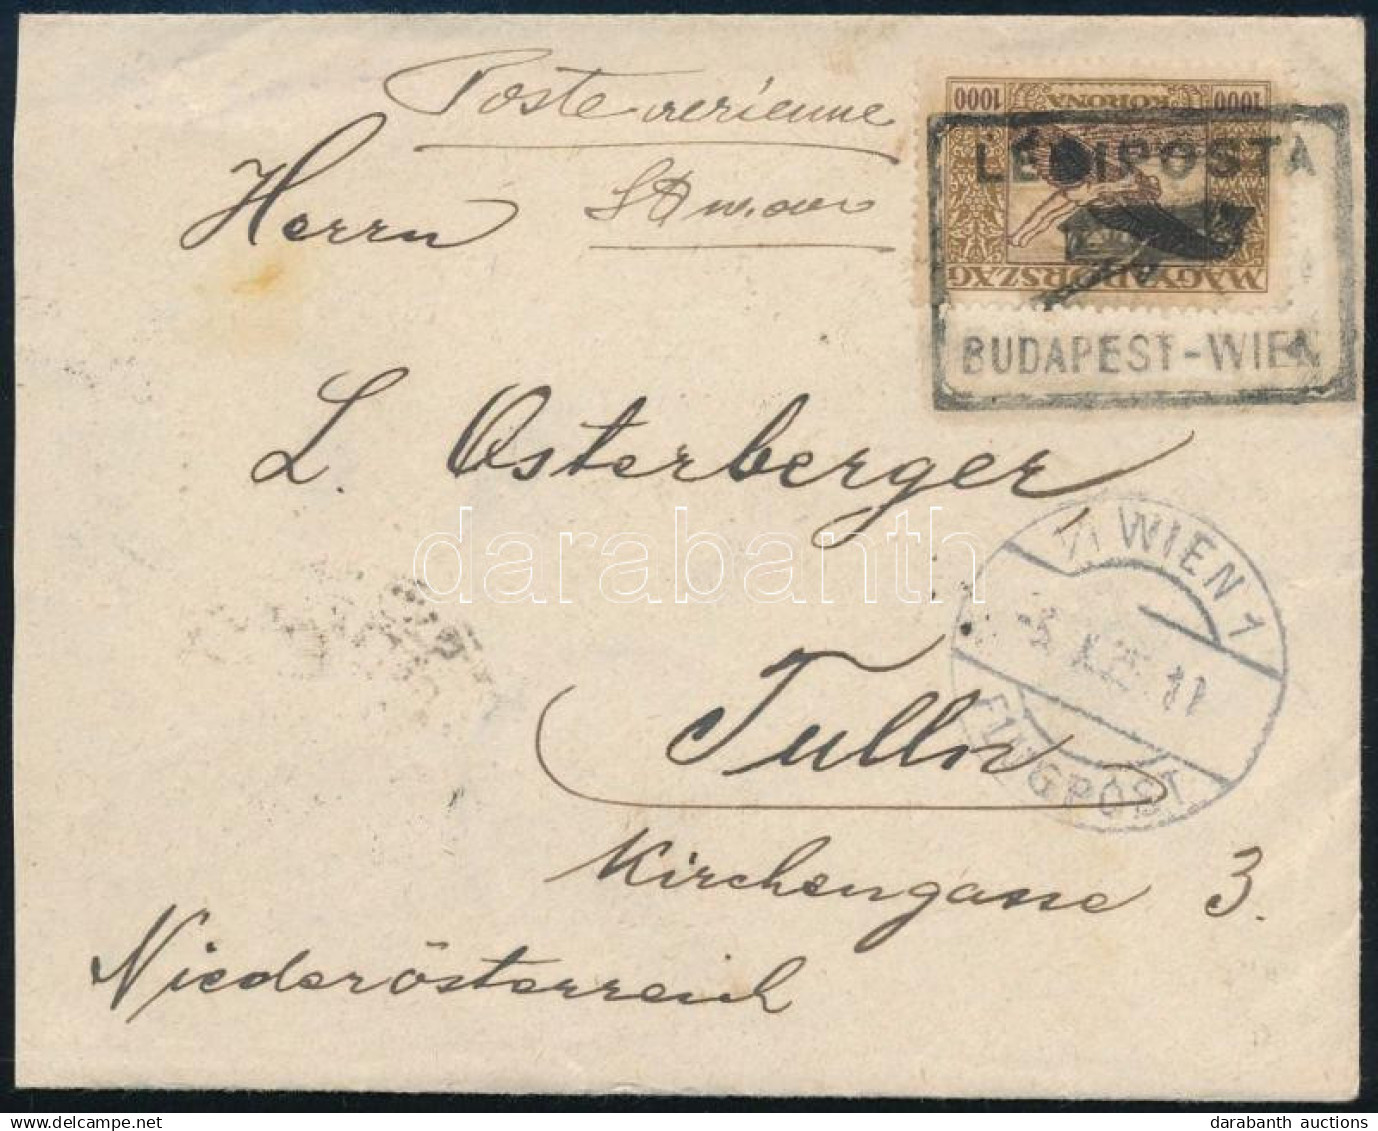 Poste aerienne
Herrn
1000 KORONA 1000
MAGYARORSZÁG
LÉGIPOSTA
BUDAPEST-WIEN
L. Osterberger
1/1 WIEN 1
11
FLUGPOST
darabanth
Tulln
Kirchengasse 3.
Niederösterreich
darabanth auctions